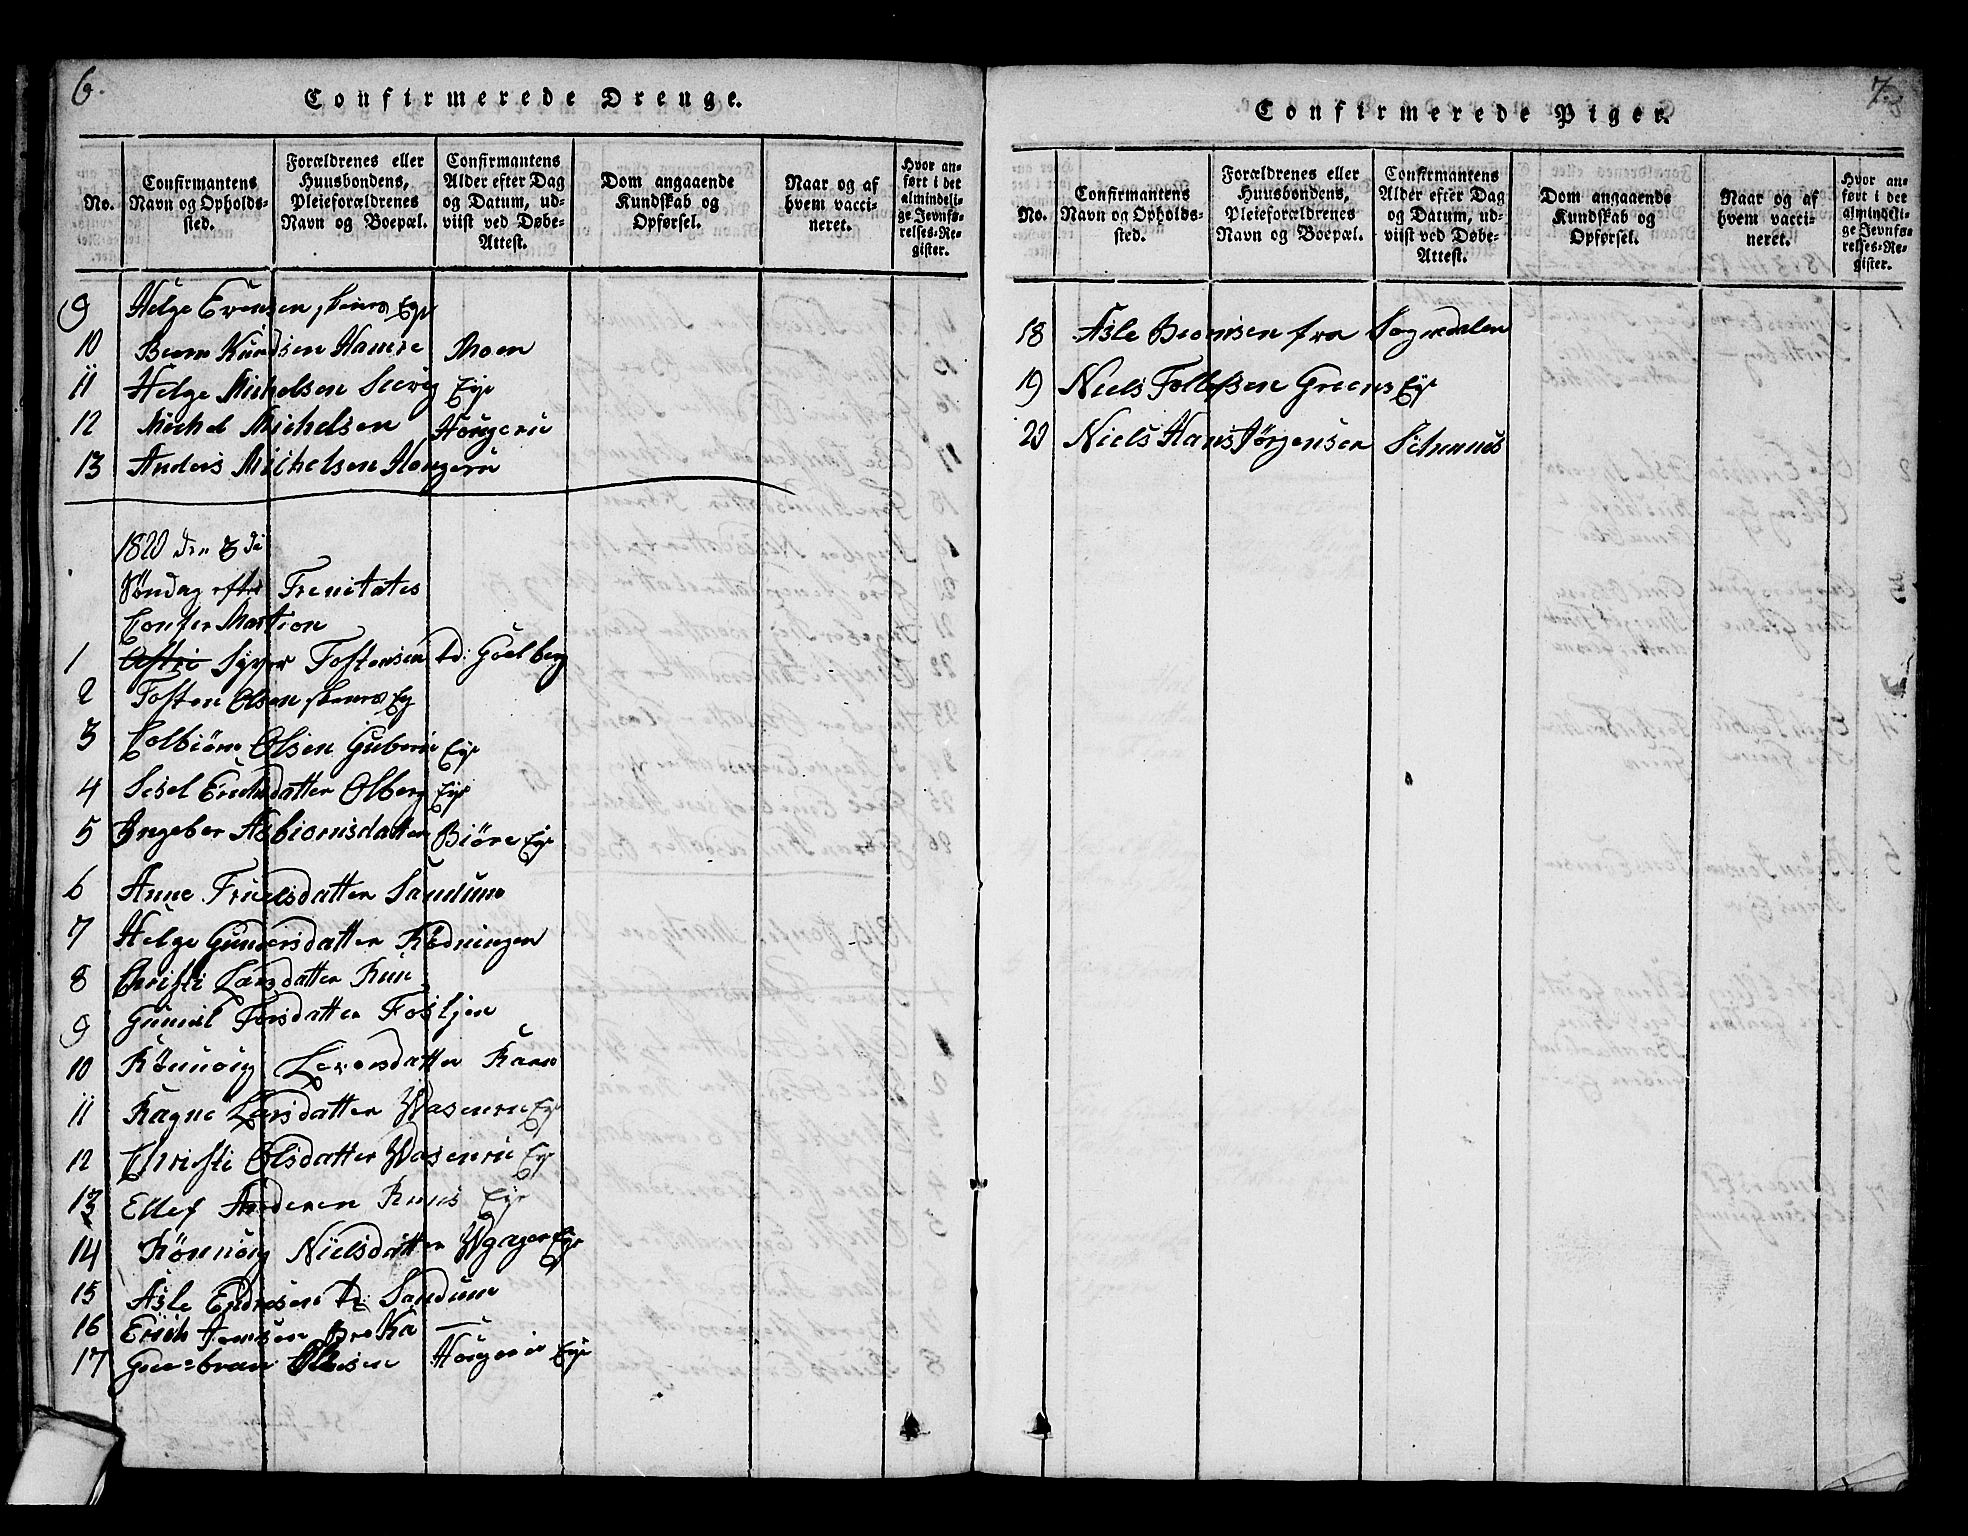 6.
Confirmerede Drenge.
No.
Confirmantens Navn og Opholds-sted.
Forældrenes eller Huusbondens, Pleieforældrenes Navn og Boepæl.
Confirmantens Alder efter Dag og Datum, ud-viist ved Døbe-Attest.
Dom angaaende Kundskab og Opførsel.
Naar og af hvem vacci-neret.
Hvor an-ført i det almindeli-ge Jevnfø-relses-Re-gister.
9 Helge Evensen Eye
10 Biørn Knudsen Hamre Moen
11 Helge Michelsen Eye
12 Michel Michelsen Hongerie
13 Anders Michelsen Hongerie
1820 den 3 di
Søndag efter Trenitates
Confermartion
1 Astri Syver Tostensen Goelberg
2 Tosten Olsen Ey
3 Colbiørn Olsen Guberie Eye
4 Sisel Erichsdatter Olberg Eye
5 Ingeber Asbiornsdatter Biøre Eye
6 Anne Truelsdatter Sandum
7 Helge Gunnersdatter Rødningen
8 Christi Larsdatter Ruu
9 Guniel Torsdatter Fosljen
10 Rønnoug Leversdatter
11 Ragne Larsdatter Wasenru Eye
12 Christi Olsdatter Wasenru Eye
13 Ellef Anderen Ruus Eye
14 Rønnoug Nielsdatter Eye
15 Asle Endresen Sandum
16 Erich Jensen
17 Gulbran Olsen Hongerie Eye
7.
Confirmerede Piger.
No.
Confirmantens Navn og Opholds-sted.
Forældrenes eller Huusbondens, Pleieforældrenes Navn og Boepæl.
Confirmantens Alder efter Dag og Datum, ud-viist ved Døbe-Attest.
Dom angaaende Kundskab og Opførsel.
Naar og af hvem vacci-neret.
Hvor an-ført i det almindeli-ge Jevnfø-relses-Re-gister.
18 Asle Beornsen fra Sognedalen
19 Niels Tollefsen Greens Eye
20 Niels Hans Jørgensen